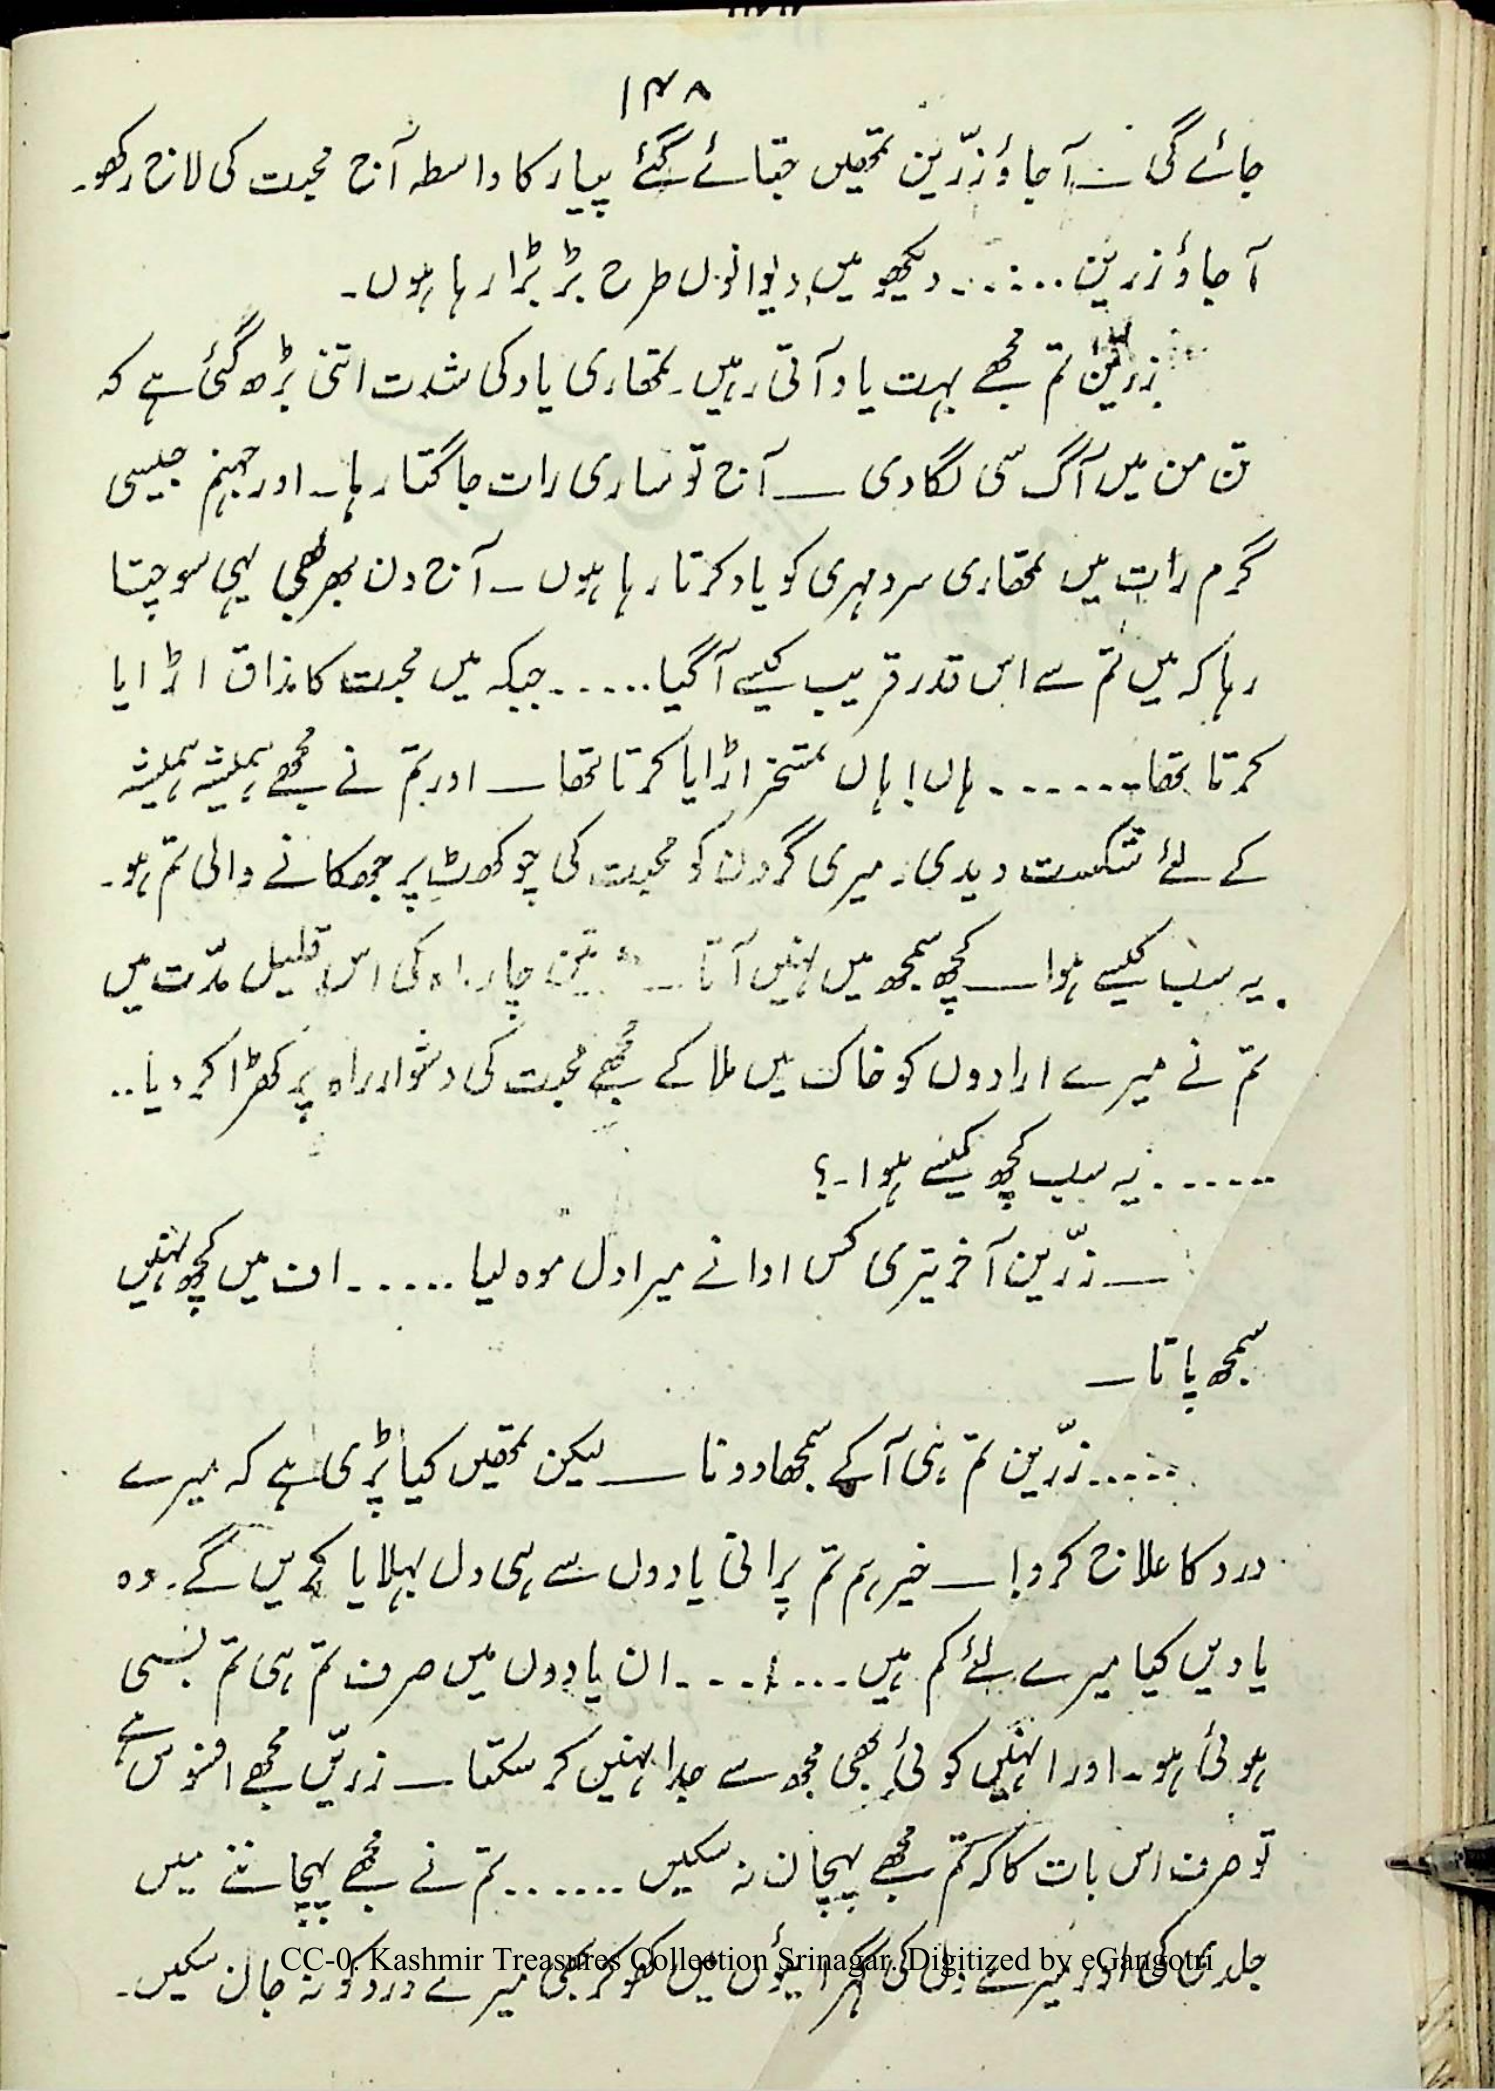 ۱۴۸
جائے گی ــ آ جاؤ زرّین تمھیں جتائے گئے پیار کا واسطہ آج محبت کی لاج رکھو۔
آ جاؤ زرین ۔۔۔۔۔۔ دیکھو میں دیوانوں طرح بڑبڑا رہا ہوں۔
زرین تم مجھے بہت یاد آتی رہیں۔ تمھاری یاد کی شدت اتنی بڑھ گئی ہے کہ
تن من میں آگ سی لگا دی ــ آج تو ساری رات جاگتا رہا۔ اور جہنم جیسی
گرم رات میں تمھاری سرد مہری کو یاد کرتا رہا ہوں ۔ آج دن بھر بھی یہی سوچتا
رہا کہ میں تم سے اس قدر قریب کیسے آ گیا ۔۔۔۔۔۔ جبکہ میں محبت کا مذاق اڑایا
کرتا تھا ۔۔۔۔۔۔۔ ہاں! ہاں تمسخر اڑایا کرتا تھا ــ اور تم نے مجھے ہمیشہ ہمیشہ
کے لئے شکست دیدی۔ میری گردن کو محبت کی چوکھٹ پر جھکانے والی تم ہو۔
یہ سب کیسے ہوا ــ کچھ سمجھ میں نہیں آتا ــ تین چار ماہ کی اس قلیل مدّت میں
تم نے میرے ارادوں کو خاک میں ملا کے مجھے محبت کی دشوار راہ پر کھڑا کر دیا ۔۔
۔۔۔۔۔۔ یہ سب کچھ کیسے ہوا۔؟
ــ زرّین آخر تیری کس ادا نے میرا دل موہ لیا ۔۔۔۔۔۔ اف میں کچھ نہیں
سمجھ پاتا ــ
۔۔۔۔۔ زرّین تم ہی آ کے سمجھا دو نا ــ لیکن تمھیں کیا پڑی ہے کہ میرے
درد کا علاج کرو! ــ خیر ہم تم پرانی یادوں سے ہی دل بہلایا کریں گے۔ وہ
یادیں کیا میرے لئے کم ہیں ۔۔۔۔۔۔۔ ان یادوں میں صرف تم ہی تم بسی
ہوئی ہو۔ اور انہیں کوئی بھی مجھ سے جدا نہیں کر سکتا ــ زرین مجھے افسوس ہے
تو صرف اس بات کا کہ تم مجھے پہچان نہ سکیں ۔۔۔۔۔۔ تم نے مجھے پہچاننے میں
جلدی کی اور میرے دل کی گہرائیوں میں کھو کر بھی میرے درد کو نہ جان سکیں۔
CC-0. Kashmir Treasures Collection Srinagar. Digitized by eGangotri